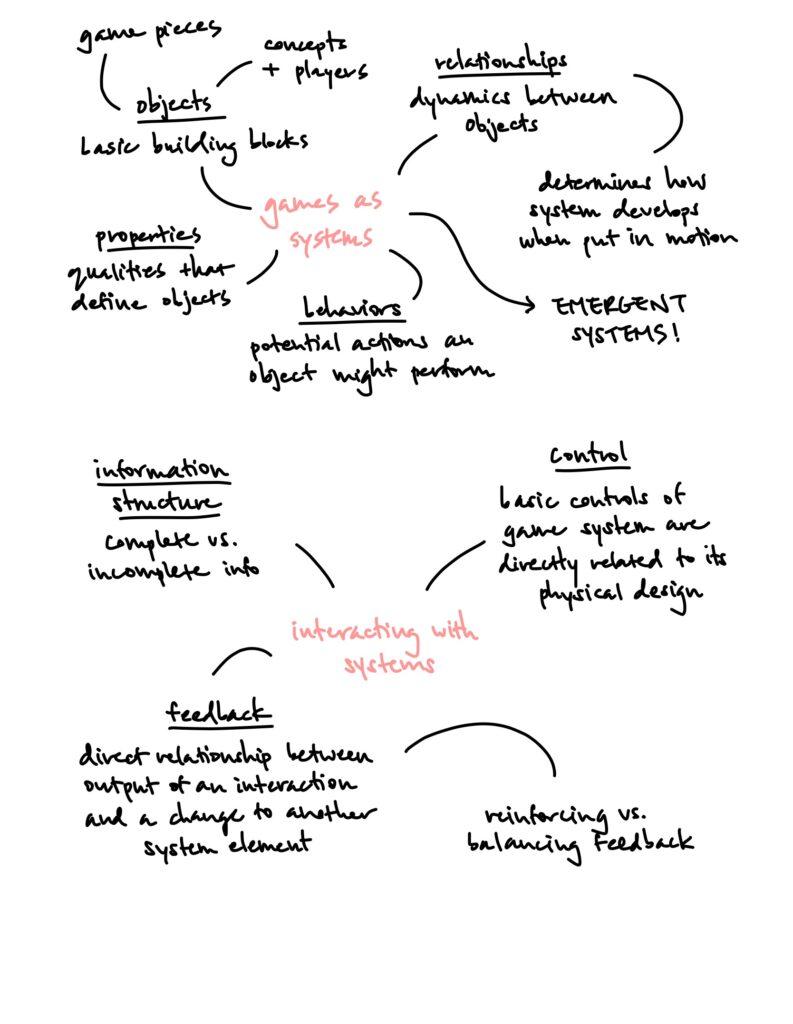 game pieces
concepts
+ players
objects
basic building blocks
relationships
dynamics between
objects
determines how
system develops
when put in motion
games as
systems
properties
qualities that
define objects
behaviors
potential actions an
object might perform
EMERGENT
SYSTEMS!
information
structure
complete vs.
incomplete info
control
basic controls of
game system are
directly related to its
physical design
interacting with
systems
feedback
direct relationship between
output of an interaction
and a change to another
system element
reinforcing vs.
balancing feedback